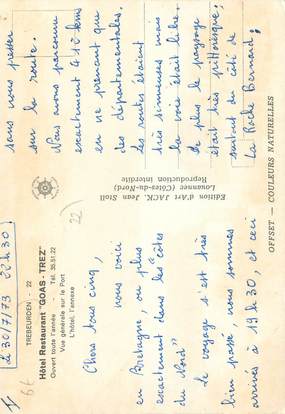 TREBEURDEN - 22
Hôtel Restaurant "GOAS - TREZ"
Ouvert toute l'année Tél. 35.51.22
Vue générale sur le Port
L'hôtel, l'annexe
22
6€
le 30/7/73 22h30
Chers tous cinq,
nous voici
en Bretagne, ou plus
exactement dans les "côtes
du Nord"
Le voyage s'est très
bien passé, nous sommes
arrivés à 19h30, et ceci
sans nous presser
sur la route.
Nous avons parcouru
exactement 4 km
en ne prenant que
des départementales.
Les routes étaient
très sinueuses mais
la voie était libre.
De plus le paysage
était très pittoresque,
surtout du côté de
La Roche Bernard;
Edition d'Art JACK, Jean Stoll
Louannec (Côtes-du-Nord)
Reproduction interdite
OFFSET — COULEURS NATURELLES